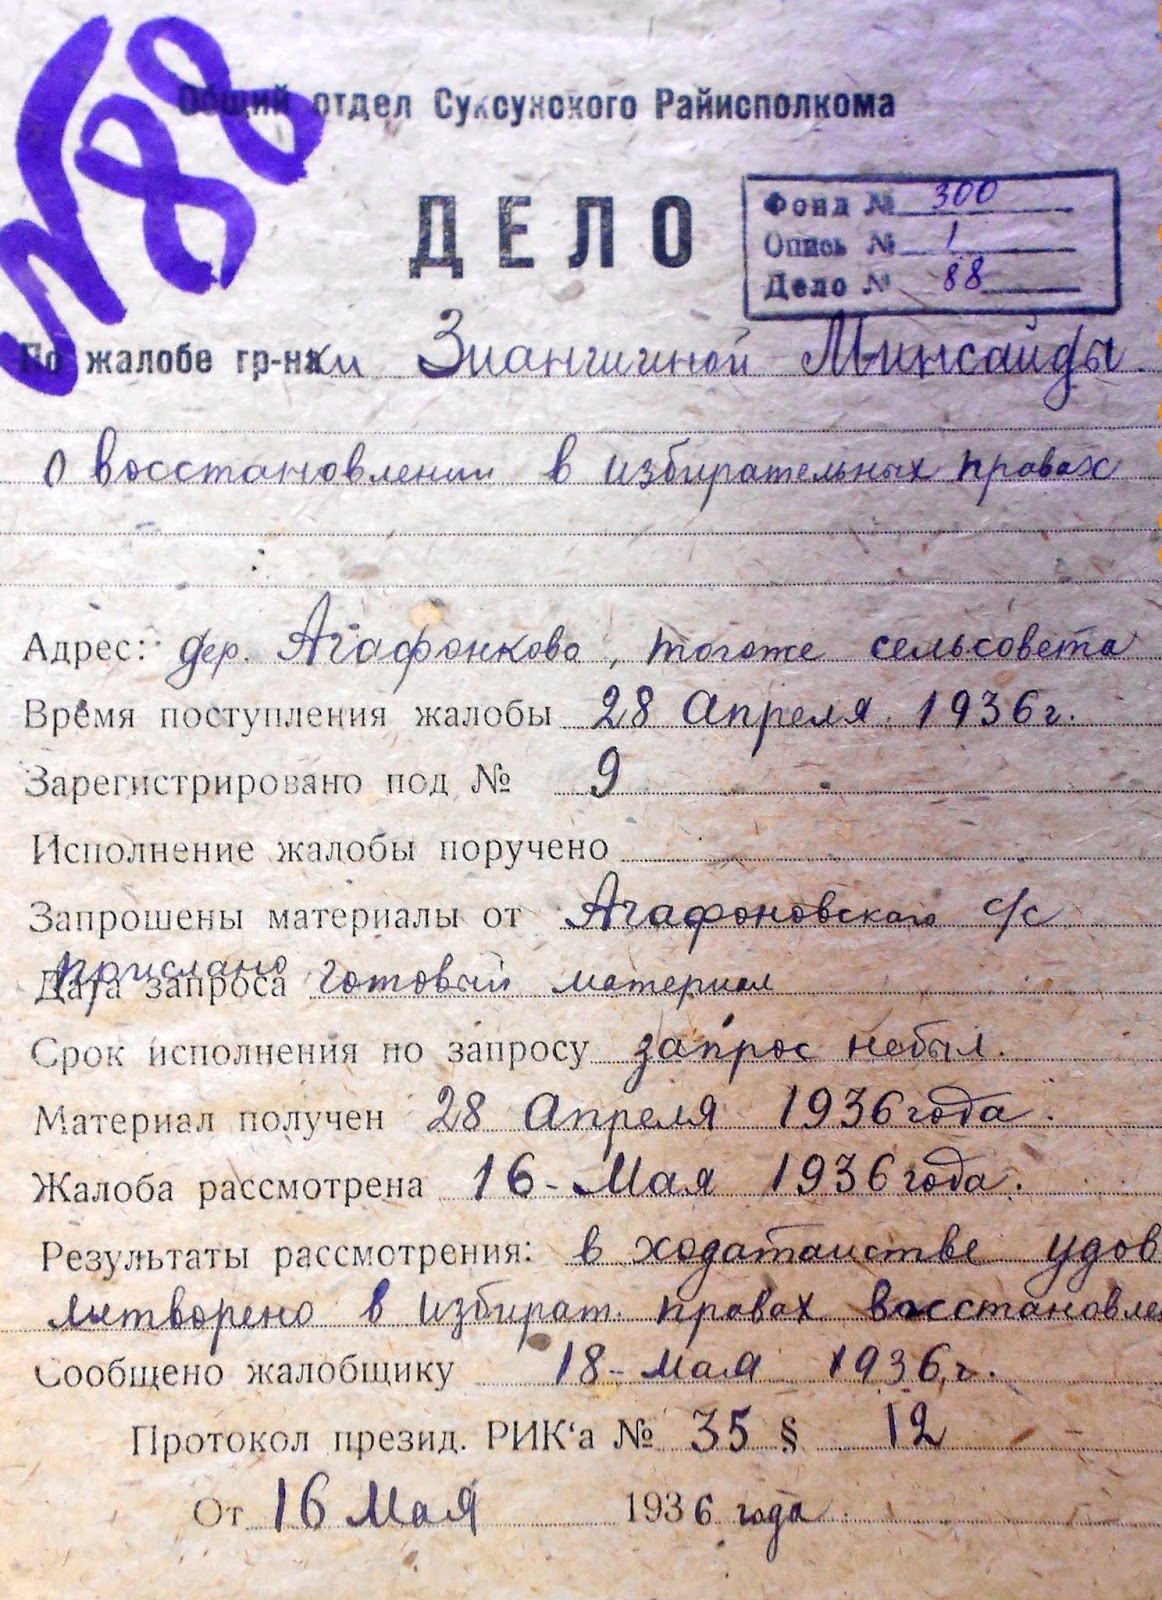 №88
Общий отдел Суксунского Райисполкома
ДЕЛО
Фонд № 300
Опись № 1
Дело № 88
По жалобе гр-на ки Зиангигной Минсаиды
о восстановлении в избирательных правах
Адрес: дер. Агафонково, тогоже сельсовета
Время поступления жалобы 28 Апреля 1936 г.
Зарегистрировано под № 9
Исполнение жалобы поручено
Запрошены материалы от Агафоновского с/с
прислано
Дата запроса готовый материал
Срок исполнения по запросу запрос небыл.
Материал получен 28 Апреля 1936 года.
Жалоба рассмотрена 16 - Мая 1936 года.
Результаты рассмотрения: в ходатаистве удов
лятворено в избират. правах восстановле
Сообщено жалобщику 18 - мая 1936 г.
Протокол презид. РИК‘а № 35 § 12
От 16 Мая 1936 года